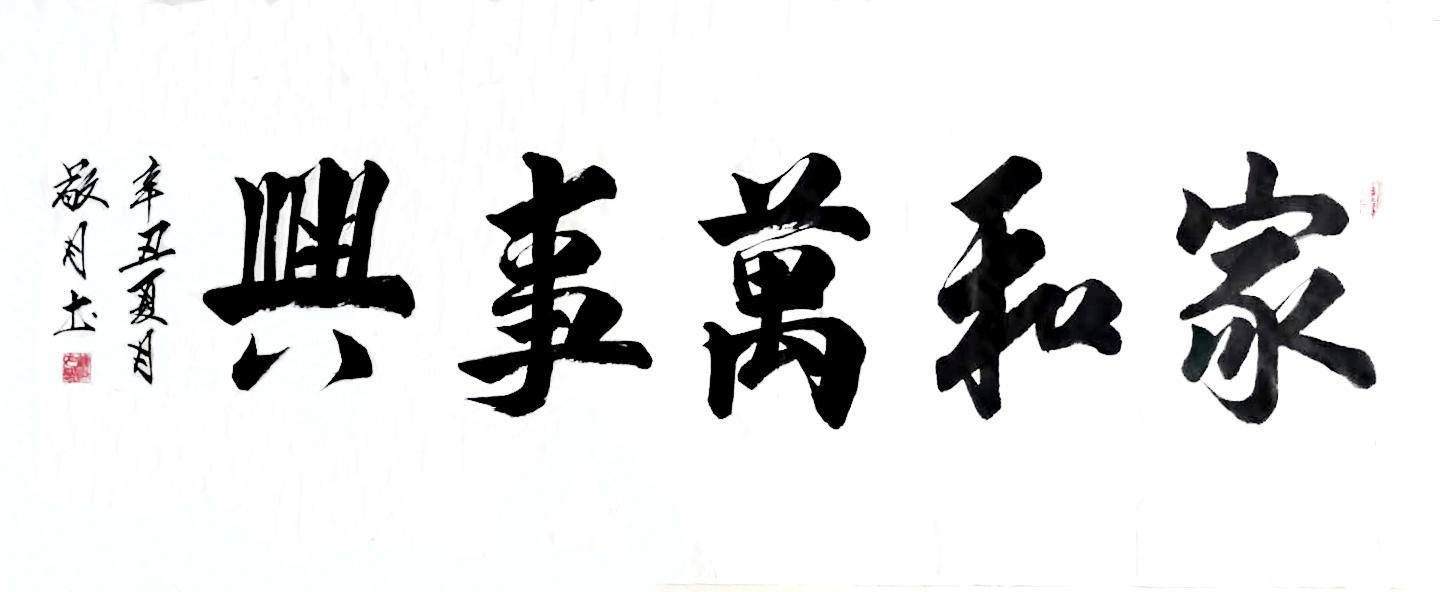 家和萬事興
辛丑夏月
敬月书